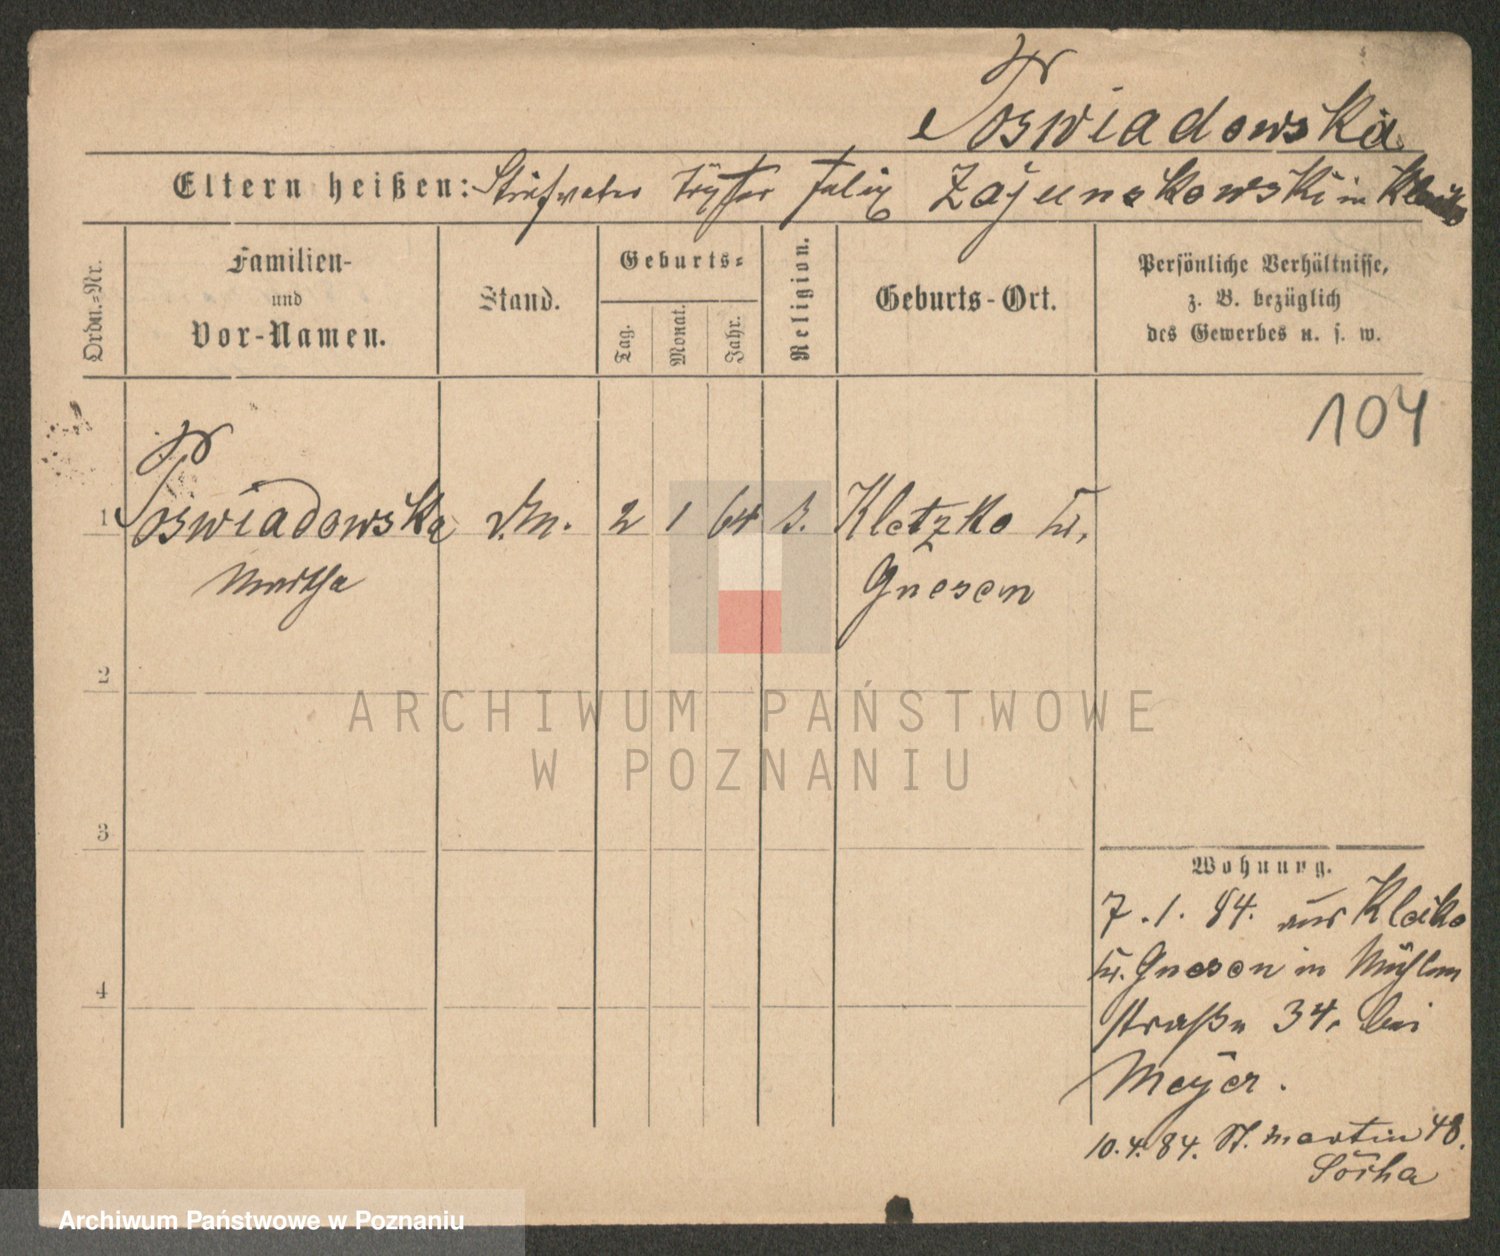 Poswiadowska
Eltern heißen: Stiefvater Töpfer Felix Zajunskowski in
Ordn.=Nr.
Familien-
und
Vor-Namen.
Stand.
Geburts=
Tag.
Monat.
Jahr.
Religion.
Geburts-Ort.
Persönliche Verhältnisse,
z. B. bezüglich
des Gewerbes u. s. w.
104
1 Poswiadowska 2 1 64 Kletzko Kr.
Martha Gnesen
2
3
4
Wohnung.
7.1.84. aus Kletzko
Kr. Gnesen in Mühlen
straße 34. bei
Meyer.
10.4.84. St. Martin 48.
ARCHIWUM PAŃSTWOWE
W POZNANIU
Archiwum Państwowe w Poznaniu